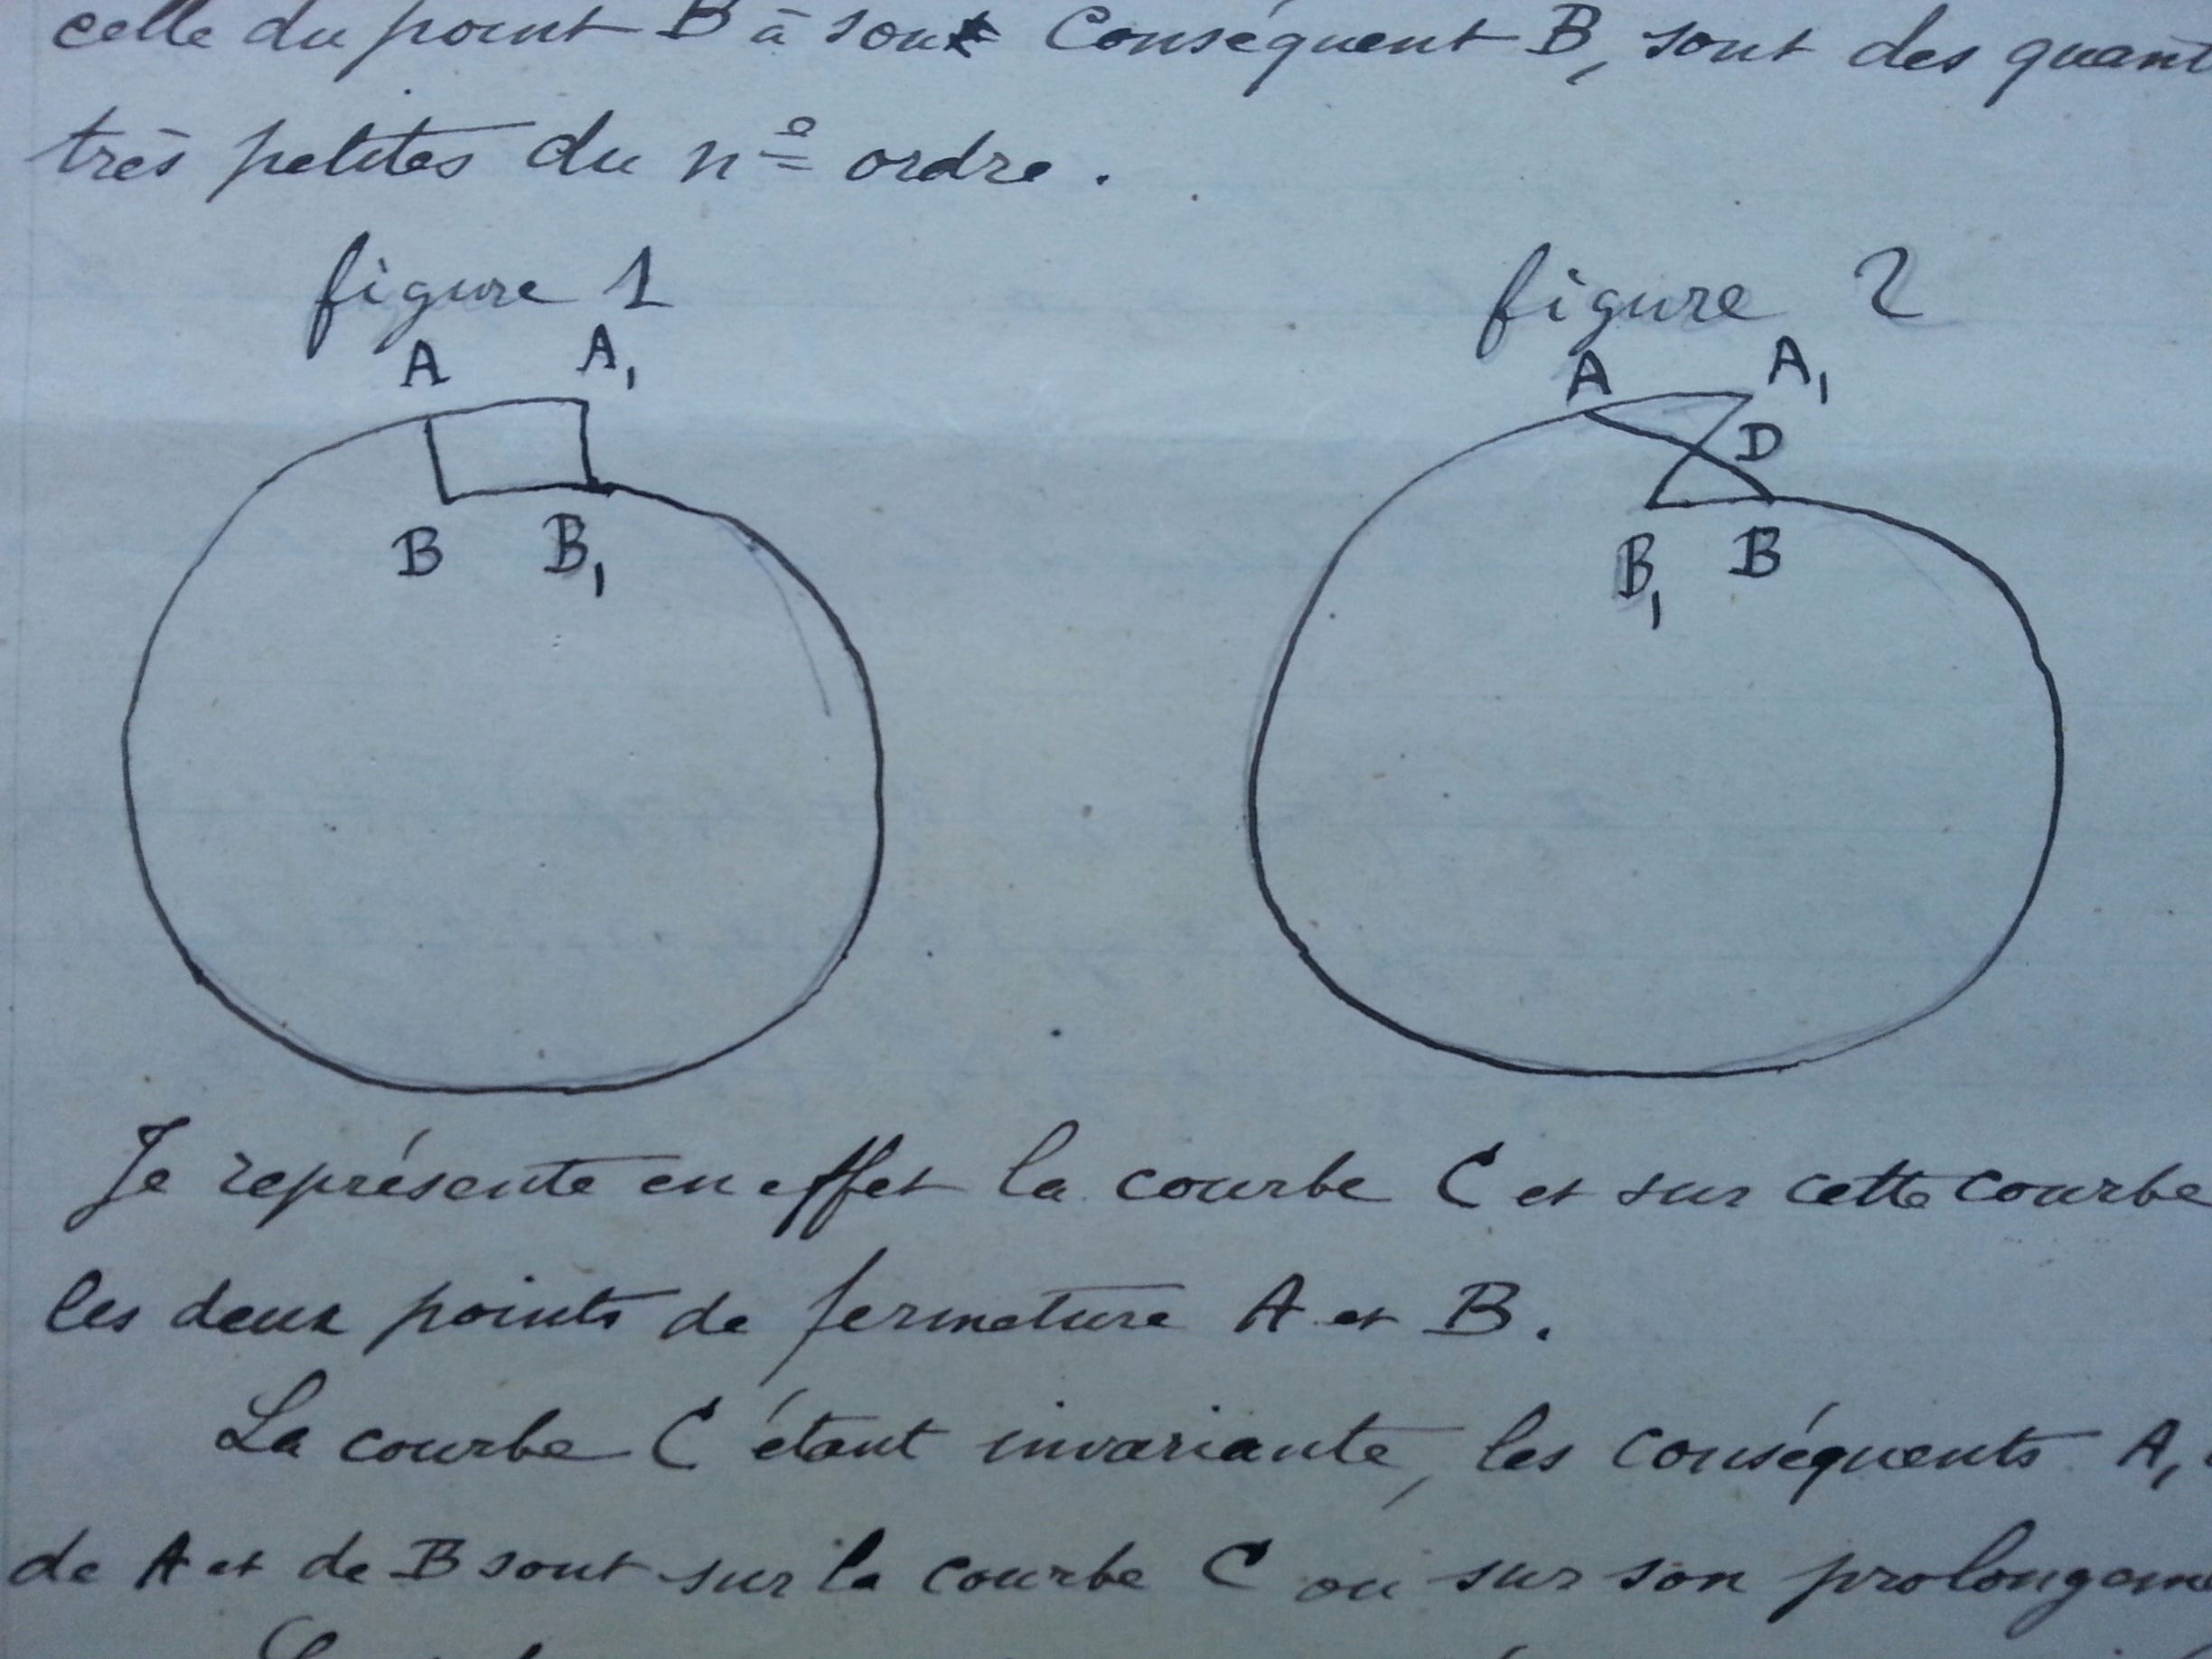 celle du point B à son Conséquent B, sont des quant
très petites du n e ordre.
figure 1
figure 2
A A,
A A,
D
B B,
B, B
Je représente en effet la courbe C et sur cette courbe
les deux points de fermeture A et B.
La courbe C étant invariante, les conséquents A,
de A et de B sont sur la courbe C ou sur son prolongeme